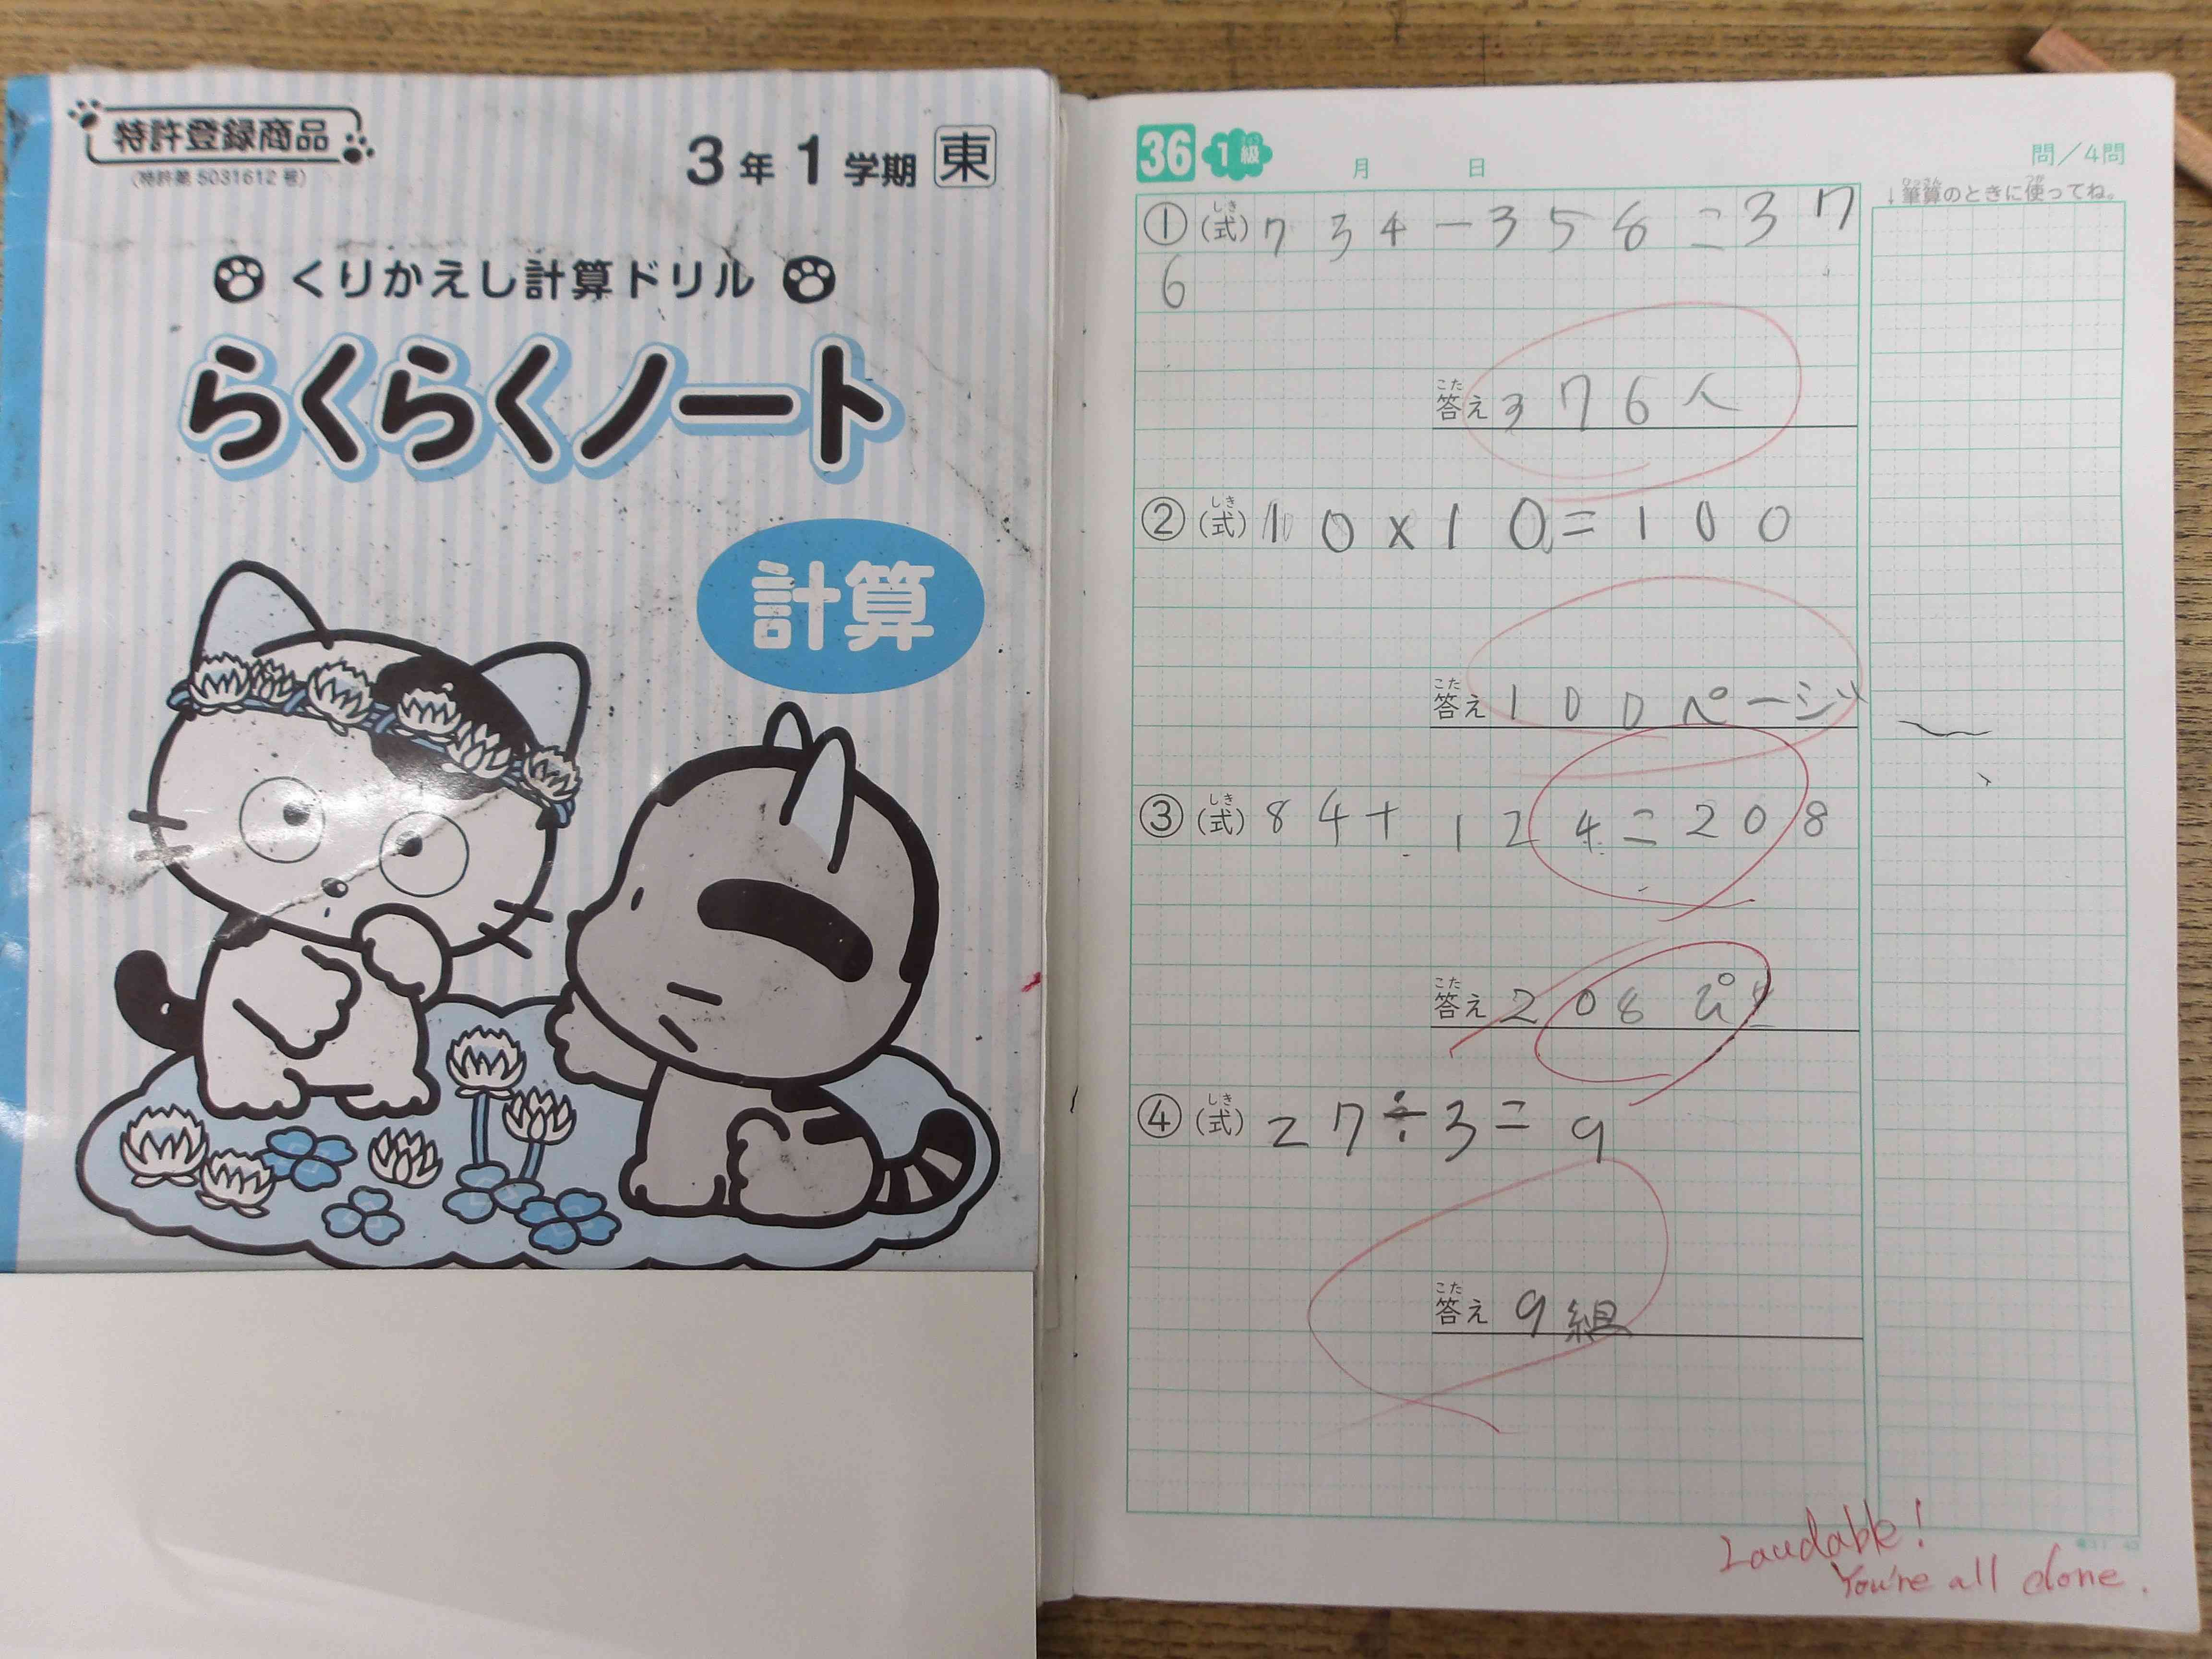 特許登録商品
(特許第5031612号)
3年1学期 東
くりかえし計算ドリル
らくらくノート
計算
36 1級 月 日 問/4問
↓筆算のときに使ってね。
① (式) 734-358=37
6
答え 376人
② (式) 10×10=100
答え 100ページ
③ (式) 84+124=208
答え 208
④ (式) 27÷3=9
答え 9組
Laudable!
You're all done.